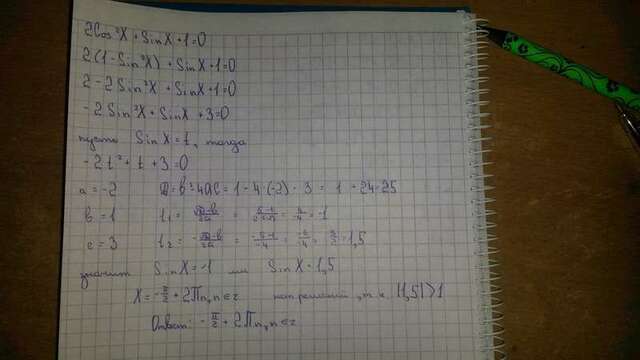 2Cos²X + SinX + 1 = 0
2(1 - Sin²X) + SinX + 1 = 0
2 - 2Sin²X + SinX + 1 = 0
- 2Sin²X + SinX + 3 = 0
пусть SinX = t, тогда
- 2t² + t + 3 = 0
a = -2 D = b² - 4ac = 1 - 4·(-2)·3 = 1 - 24 = 25
b = 1 t₁ = √D-b/2a = 5-1/2·(-2) = 4/-4 = -1
c = 3 t₂ = -√D-b/2a = -5-1/-4 = -6/-4 = 3/2 = 1,5
значит SinX = -1 или SinX = 1,5
X = -π/2 + 2πn, n∈z нет решений, т.к. |1,5|>1
Ответ: -π/2 + 2πn, n∈z